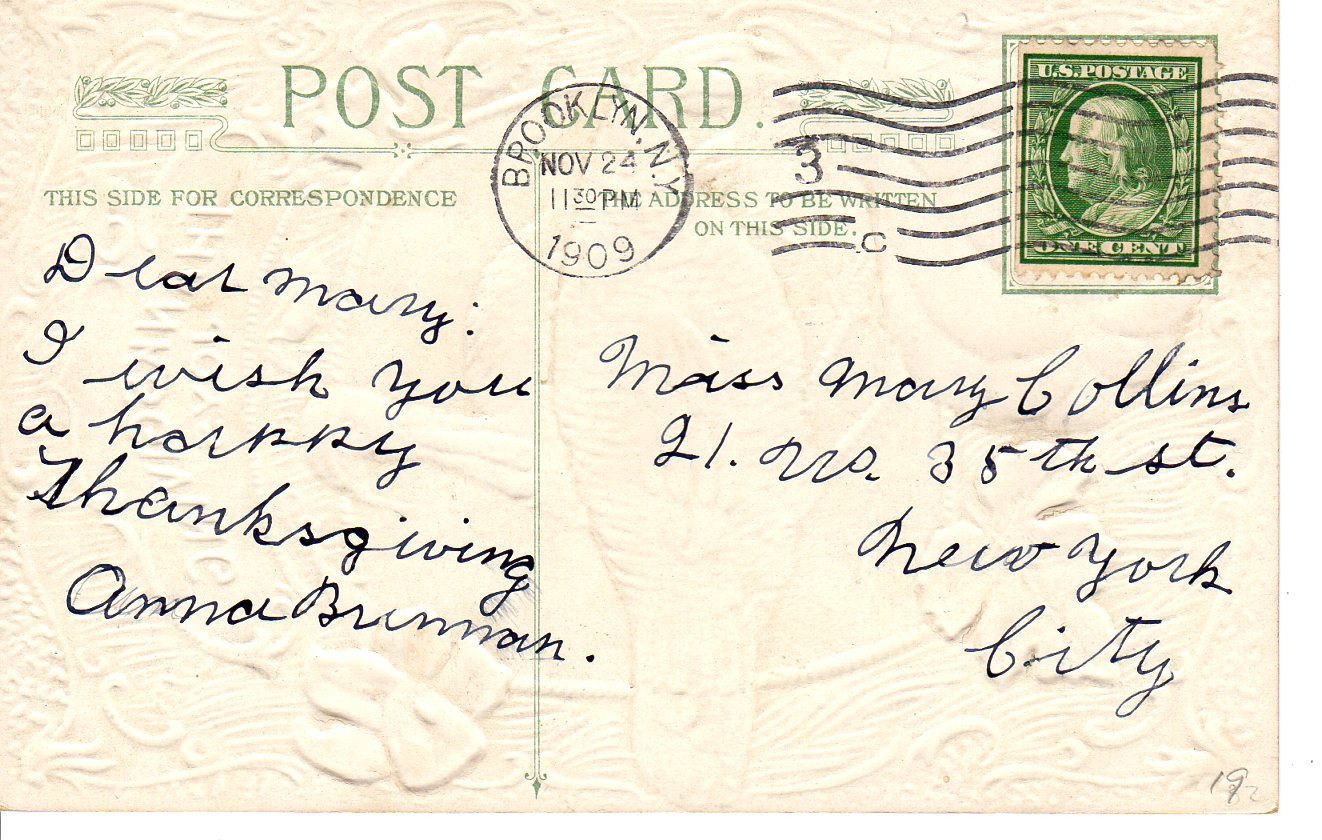 POST CARD.
THIS SIDE FOR CORRESPONDENCE
THE ADDRESS TO BE WRITTEN
ON THIS SIDE.
BROOKLYN, N.Y.
NOV 24
11 30 PM
1909
3
C
U.S. POSTAGE
ONE CENT
Dear Mary:
I wish you
a happy
Thanksgiving
Anna Brennan.
Miss Mary Collins
21. W. 35th st.
New York
City